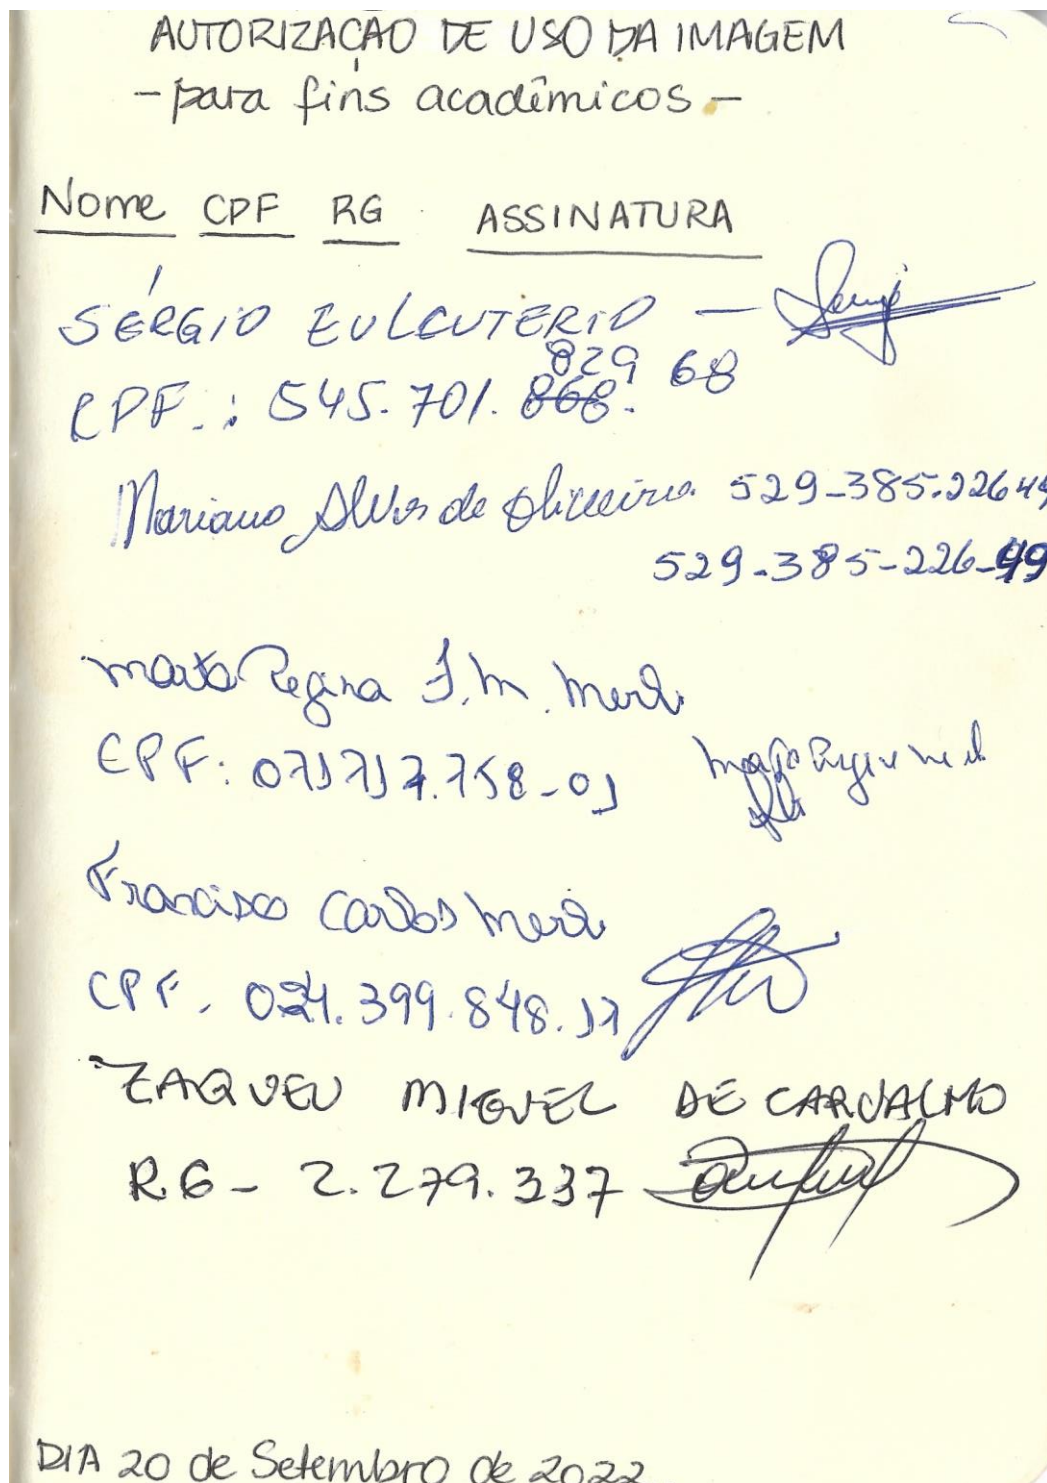 AUTORIZAÇÃO DE USO DA IMAGEM
- para fins acadêmicos -
Nome CPF RG ASSINATURA
SÉRGIO EULEUTERIO -
CPF.: 545.701.829 68
868.
Mariano Alves de Oliveira 529-385.226 49
529-385-226-49
Marta Regina J. M. Merli
CPF: 071717.758-01
Francisco Carlos Merli
CPF. 024.399.848.17
ZAQUEU MIGUEL DE CARVALHO
RG - 2.279.337
DIA 20 de Setembro de 2022